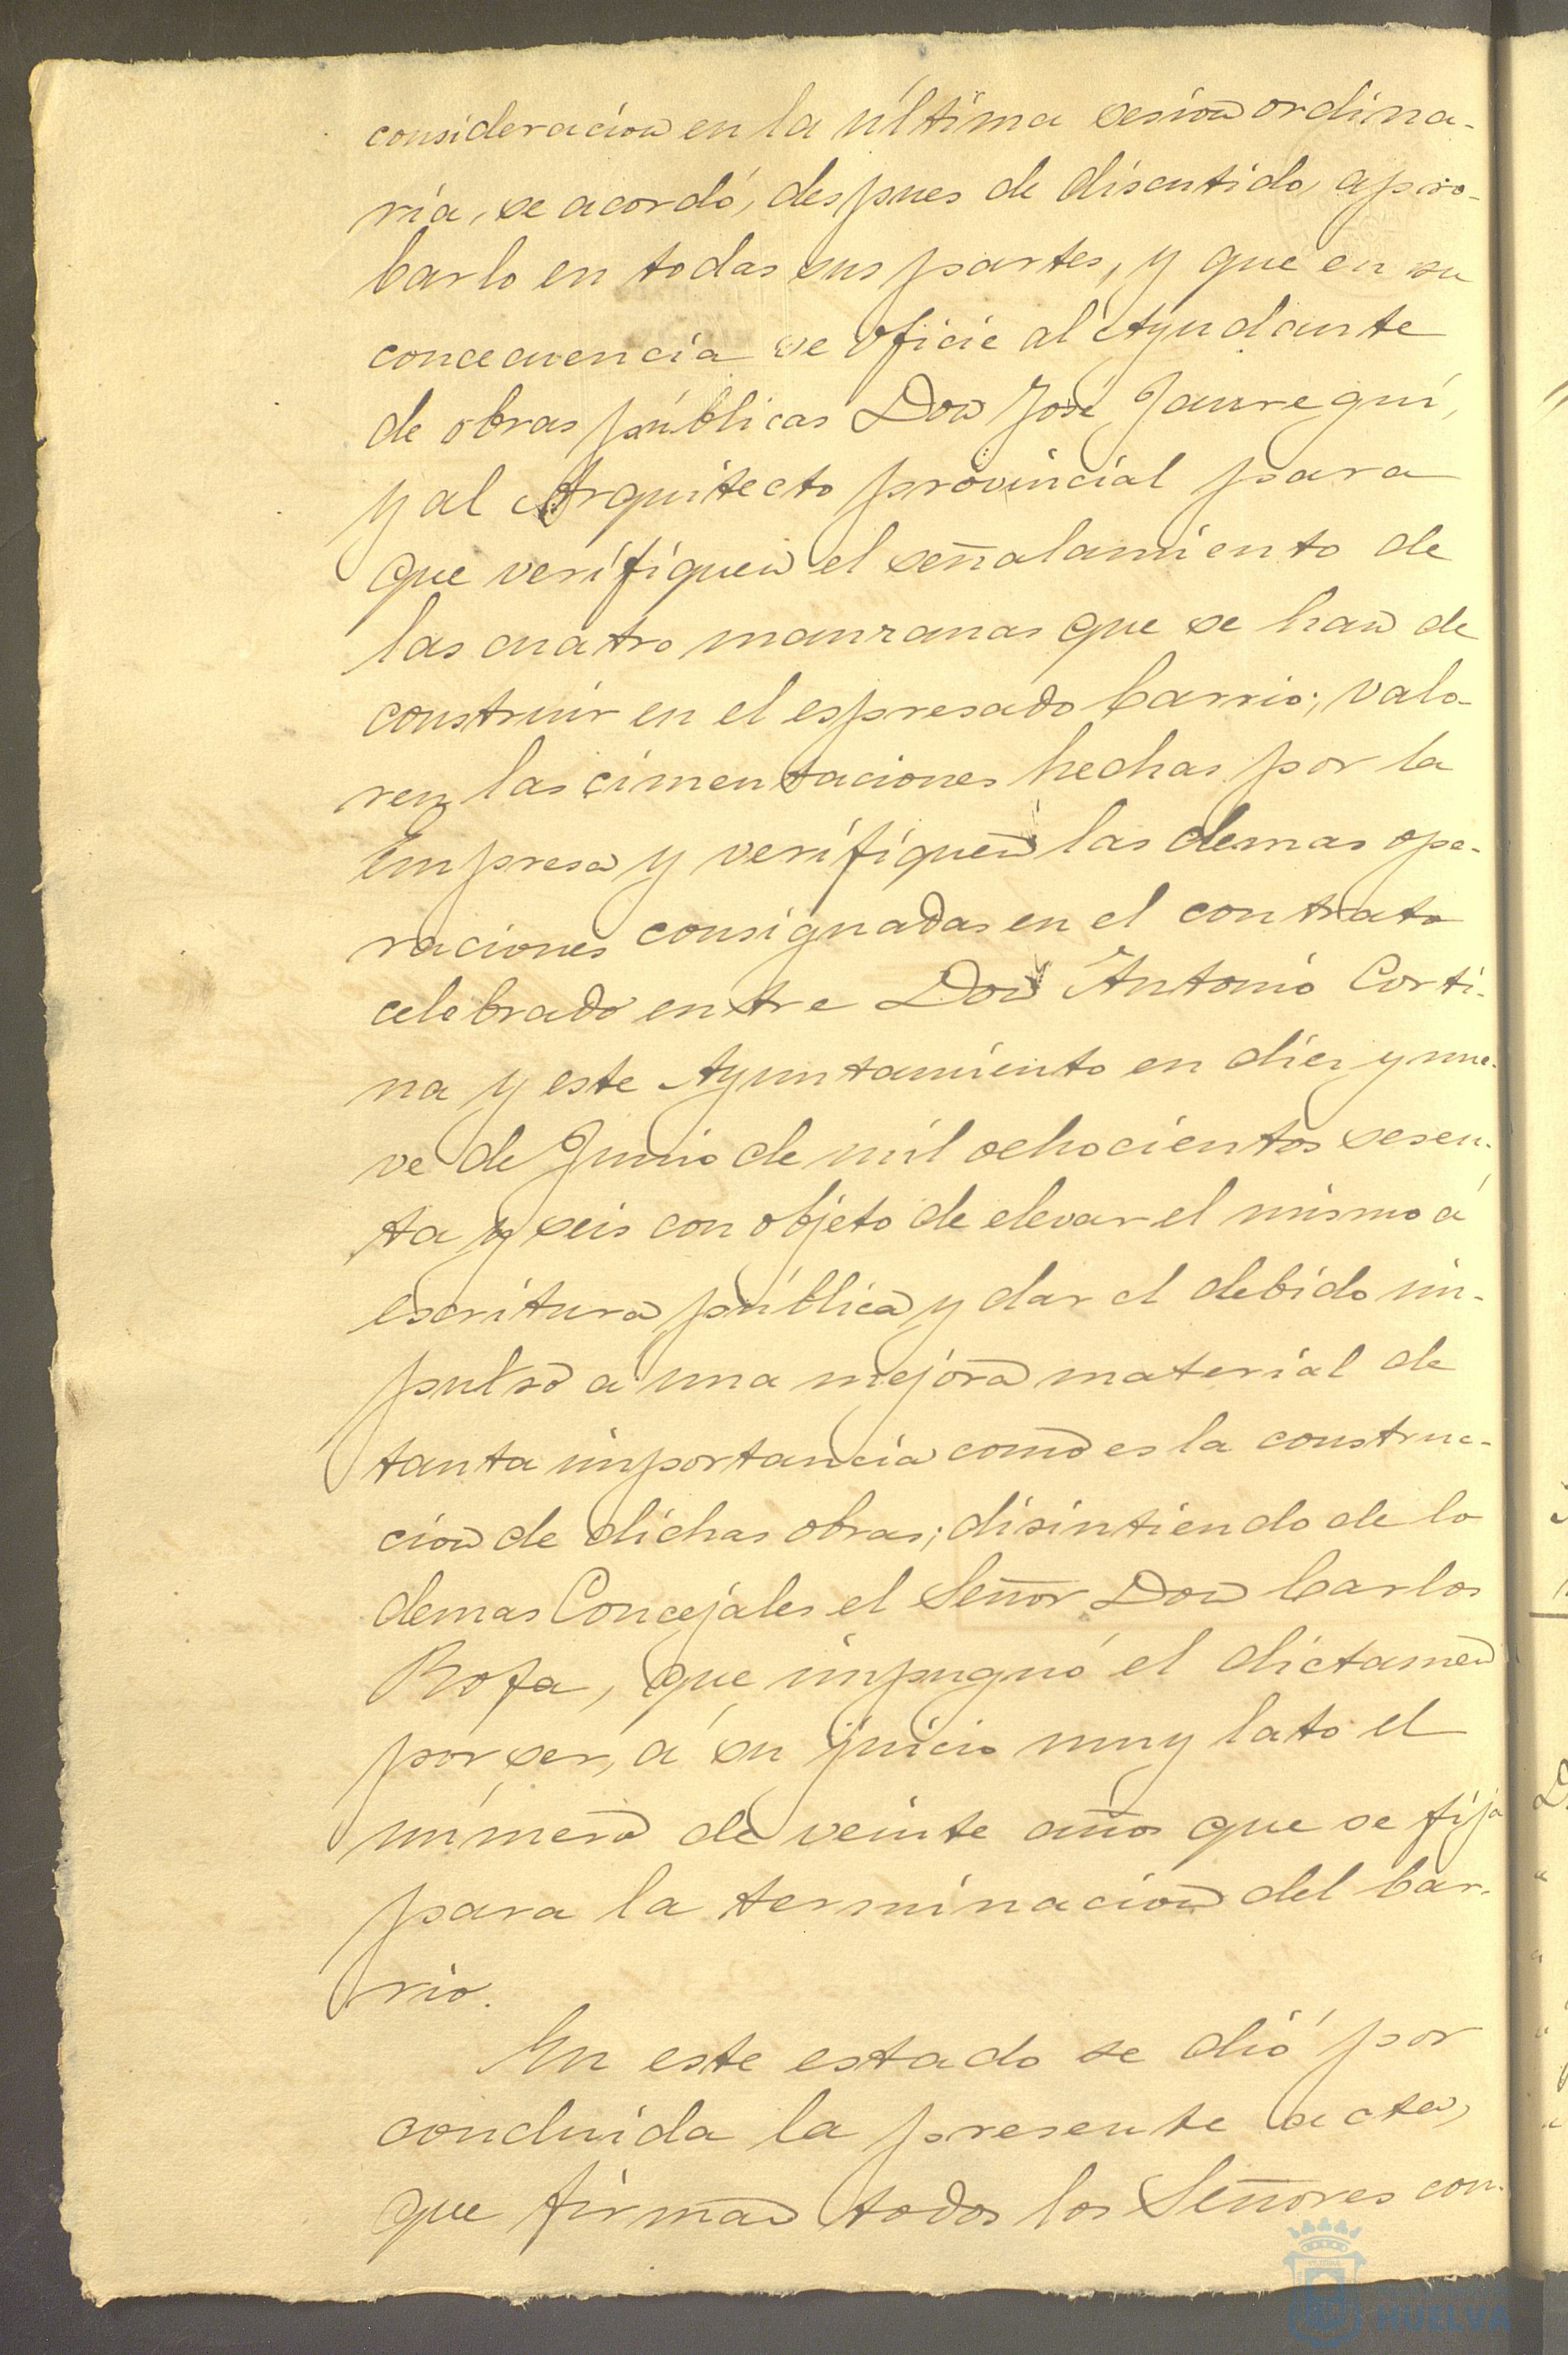 consideracion en la última sesion ordina-
ria, se acordó, despues de discutido, apro-
barlo en todas sus partes, y que en su
concecuencia se oficie al Ayudante
de obras públicas Don José Jauregui,
y al Arquitecto provincial para
que verifiquen el señalamiento de
las cuatro manzanas que se han de
construir en el espresado barrio; valo-
ren las cimentaciones hechas por la
Empresa y verifiquen las demas ope-
raciones consignadas en el contrato
celebrado entre Don Antonio Corti-
na y este Ayuntamiento en diez y nue-
ve de Junio de mil ochocientos sesen-
ta y seis con objeto de elevar el mismo á
escritura pública y dar el debido im-
pulso á una mejora material de
tanta importancia como es la construc-
cion de dichas obras; disintiendo de lo
demas Concejales el Señor Don Carlos
Rofa, que impugnó el dictamen
por ser, á su juicio muy lato el
número de veinte años que se fija
para la terminacion del bar-
rio.
En este estado se dió por
concluida la presente acta,
que firman todos los Señores con-
HUELVA